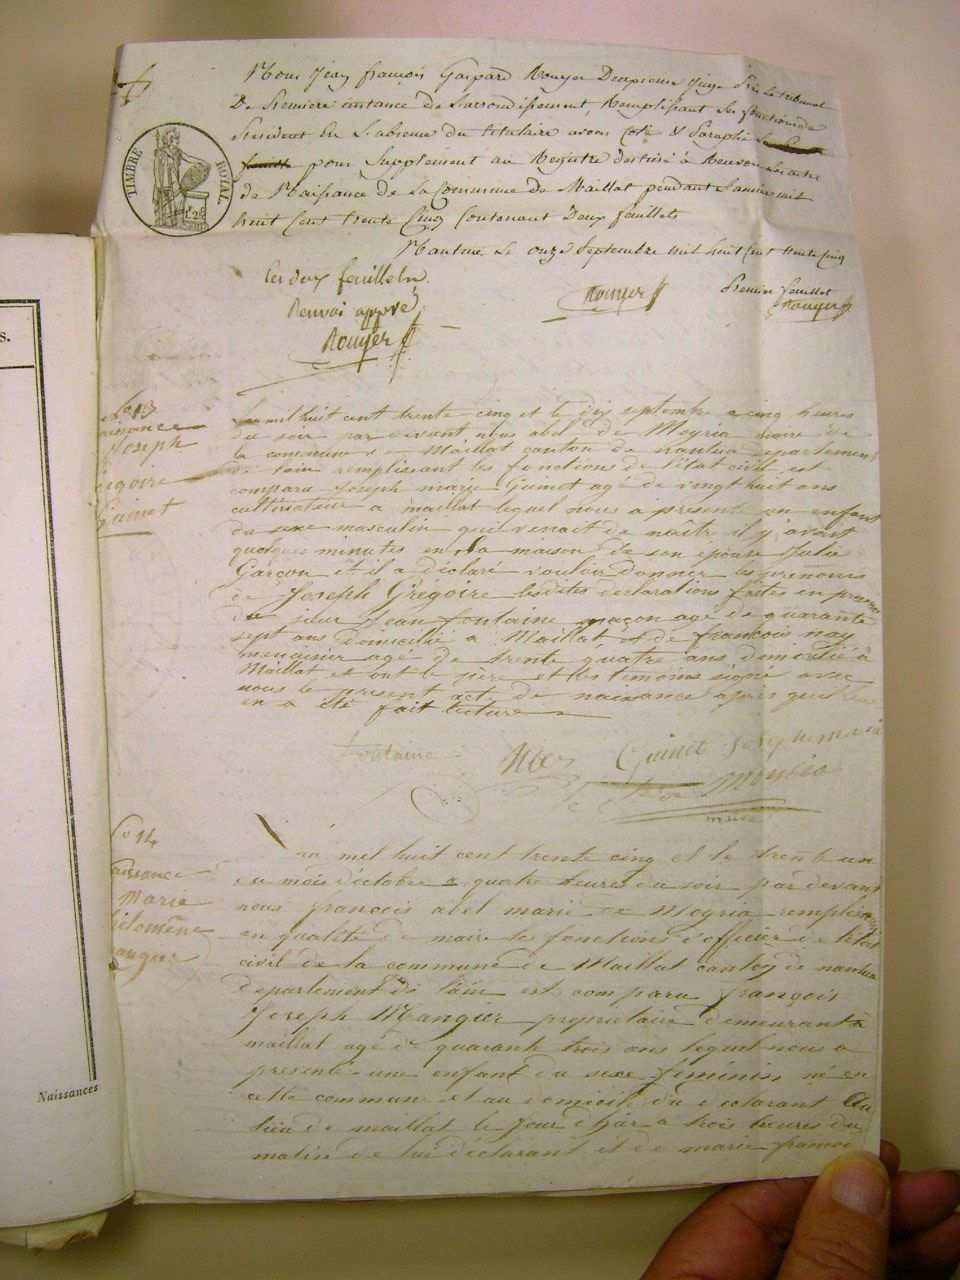 Nous Jean françois Gaspard Rouyer Deuxieme Juge Près le tribunal
De Premiere instance de Larrondissement, Remplissant Les fonctions de
President En L'absence du titulaire avons Coté & Paraphé
pour Supplement au Registre destiné à Recevoir Les actes
de Naissance De La Commune De Maillat pendant L'année mil
huit Cent trente Cinq Contenant Deux feuillets
Nantua Le onze Septembre mil huit Cent trente Cinq
TIMBRE ROYAL
les deux feuillets
Renvoi appvé
Rouyer
Rouyer
Premier feuillet
Rouyer
No 13
aissance
Joseph
régoire
Guinet
L'an mil huit cent trente cinq et le dix septembre a cinq heures
du soir par devant nous abel De Moyria maire de
la commune de Maillat canton de nantua departement
de l'ain remplissant les fonctions de l'état civil est
comparu Joseph marie Guinet agé de vingt huit ans
cultivateur a maillat lequel nous a présenté un enfant
du sexe masculin qui venait de naître il y avait
quelques minutes en la maison de son épouse Julie
Garçon et il a déclaré vouloir donner les prénoms
de Joseph Grégoire lesdites declarations faites en presence
du sieur Jean fontaine maçon agé de quarante
sept ans domicilié a Maillat et de francois nay
menuisier agé de trente quatre ans domicilié à
Maillat et ont le père et les témoins signé avec
nous le présent acte de naissance après que lec
en a été fait lecture
fontaine
Guinet Joseph marie
De Moyria
maire
No 14
aissance
Marie
hilomène
angue
L'an mil huit cent trente cinq et le trente un
du mois d'octobre a quatre heures du soir par devant
nous françois abel marie de Moyria remplissant
en qualité de maire les fonctions d'officier de l'état
civil de la commune de Maillat canton de nantua
departement de l'ain est comparu françois
Joseph Mangue propriétaire demeurant à
maillat agé de quarante trois ans lequel nous a
présenté une enfant du sexe féminin né en
cette commune et au domicile du declarant au
lieu de maillat le jour d'hier a trois heures du
matin de lui déclarant et de marie francoi
s.
Naissances